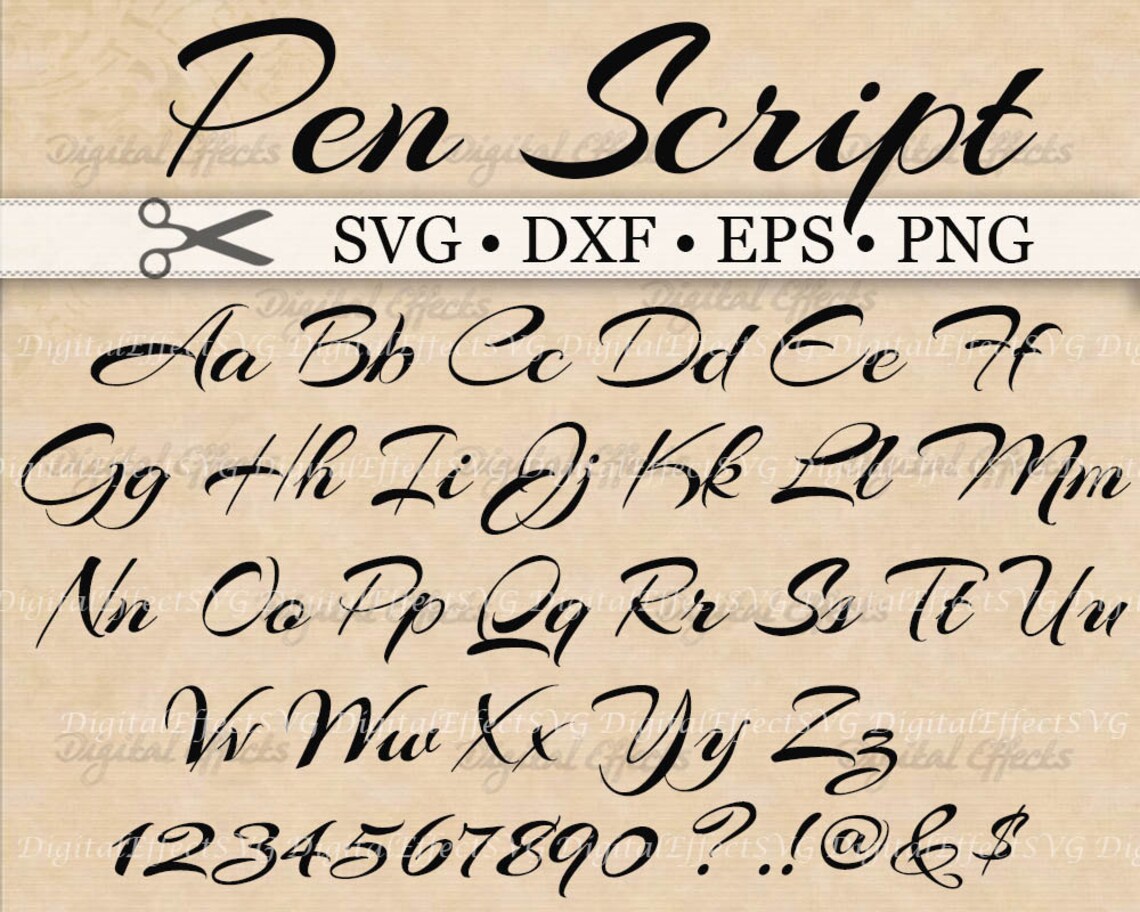 Pen Script
SVG • DXF • EPS • PNG
Aa Bb Cc Dd Ee Ff
Gg Hh Ii Jj Kk Ll Mm
Nn Oo Pp Qq Rr Ss Tt Uu
Vv Ww Xx Yy Zz
1234567890 ? . ! @ & $
Digital Effects
DigitalEffectSVG